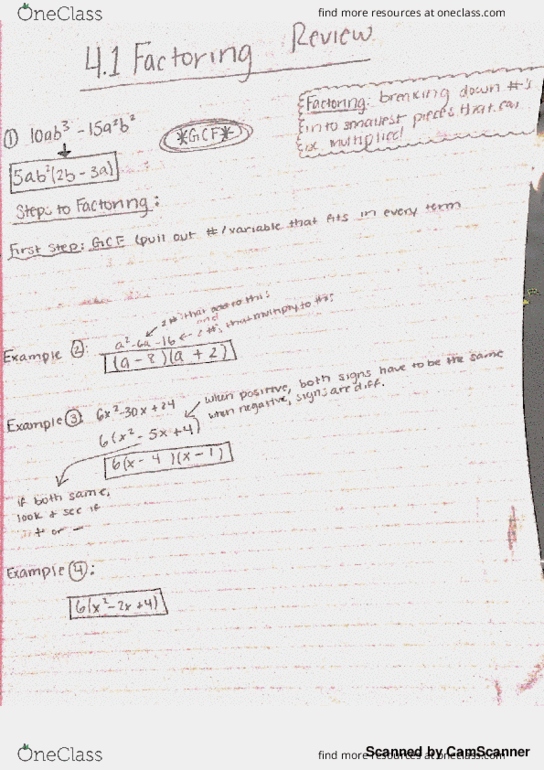 OneClass
find more resources at oneclass.com
4.1 Factoring Review
Factoring: breaking down #'s
into smallest pieces that can
be multiplied
① 10ab³ - 15a²b²
*GCF*
5ab²(2b - 3a)
Steps to Factoring:
First Step: GCF (pull out #/variable that fits in every term
2 #'s that add to this
and
Example ②: a² - 6a - 16 ← 2 #'s that multiply to this
(a - 8)(a + 2)
Example ③: 6x² - 30x + 24
when positive, both signs have to be the same
when negative, signs are diff.
6(x² - 5x + 4)
6(x - 4)(x - 1)
if both same,
look & see if
+ or -
Example ④:
6(x² - 2x + 4)
OneClass
find more resources at oneclass.com
Scanned by CamScanner